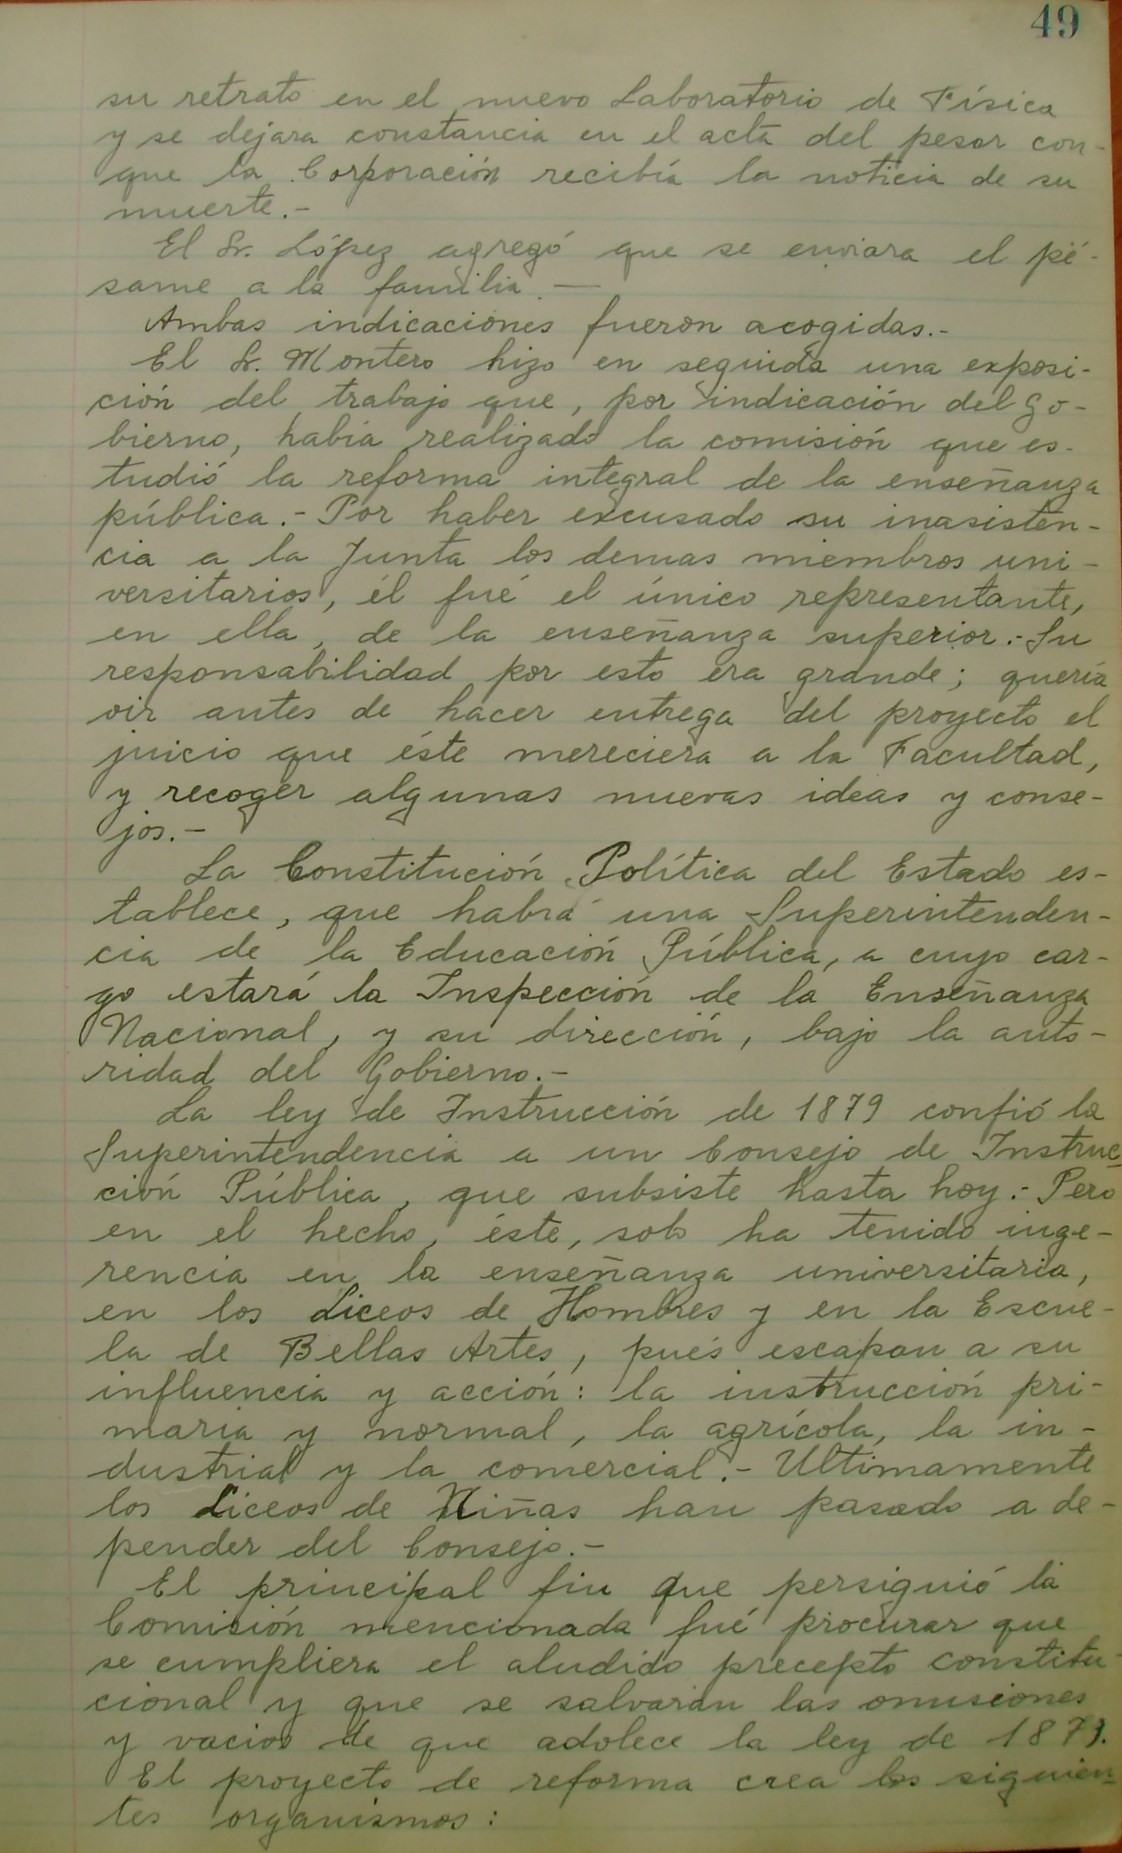 49
su retrato en el nuevo Laboratorio de Física
y se dejara constancia en el acta del pesar con-
que la Corporación recibía la noticia de su
muerte.-
El Sr. López agregó que se enviara el pé-
same a la familia.—
Ambas indicaciones fueron acogidas.-
El Sr. Montero hizo en seguida una exposi-
ción del trabajo que, por indicación del Go-
bierno, había realizado la comisión que es-
tudió la reforma integral de la enseñanza
pública.- Por haber excusado su inasisten-
cia a la Junta los demas miembros uni-
versitarios, él fué el único representante,
en ella, de la enseñanza superior.- Su
responsabilidad por esto era grande; quería
oir antes de hacer entrega del proyecto el
juicio que éste mereciera a la Facultad,
y recoger algunas nuevas ideas y conse-
jos.-
La Constitución Política del Estado es-
tablece, que habrá una Superintenden-
cia de la Educación Pública, a cuyo car-
go estará la Inspección de la Enseñanza
Nacional, y su dirección, bajo la auto-
ridad del Gobierno.-
La ley de Instrucción de 1879 confió la
Superintendencia a un Consejo de Instruc-
ción Pública, que subsiste hasta hoy.- Pero
en el hecho, éste, solo ha tenido inge-
rencia en la enseñanza universitaria,
en los Liceos de Hombres y en la Escue-
la de Bellas Artes, pués escapan a su
influencia y acción: la instrucción pri-
maria y normal, la agrícola, la in-
dustrial y la comercial.- Ultimamente
los Liceos de Niñas han pasado a de-
pender del Consejo.-
El principal fin que persiguió la
Comisión mencionada fué procurar que
se cumpliera el aludido precepto constitu-
cional y que se salvaran las omisiones
y vacios de que adolece la ley de 1879.
El proyecto de reforma crea los siguien-
tes organismos: